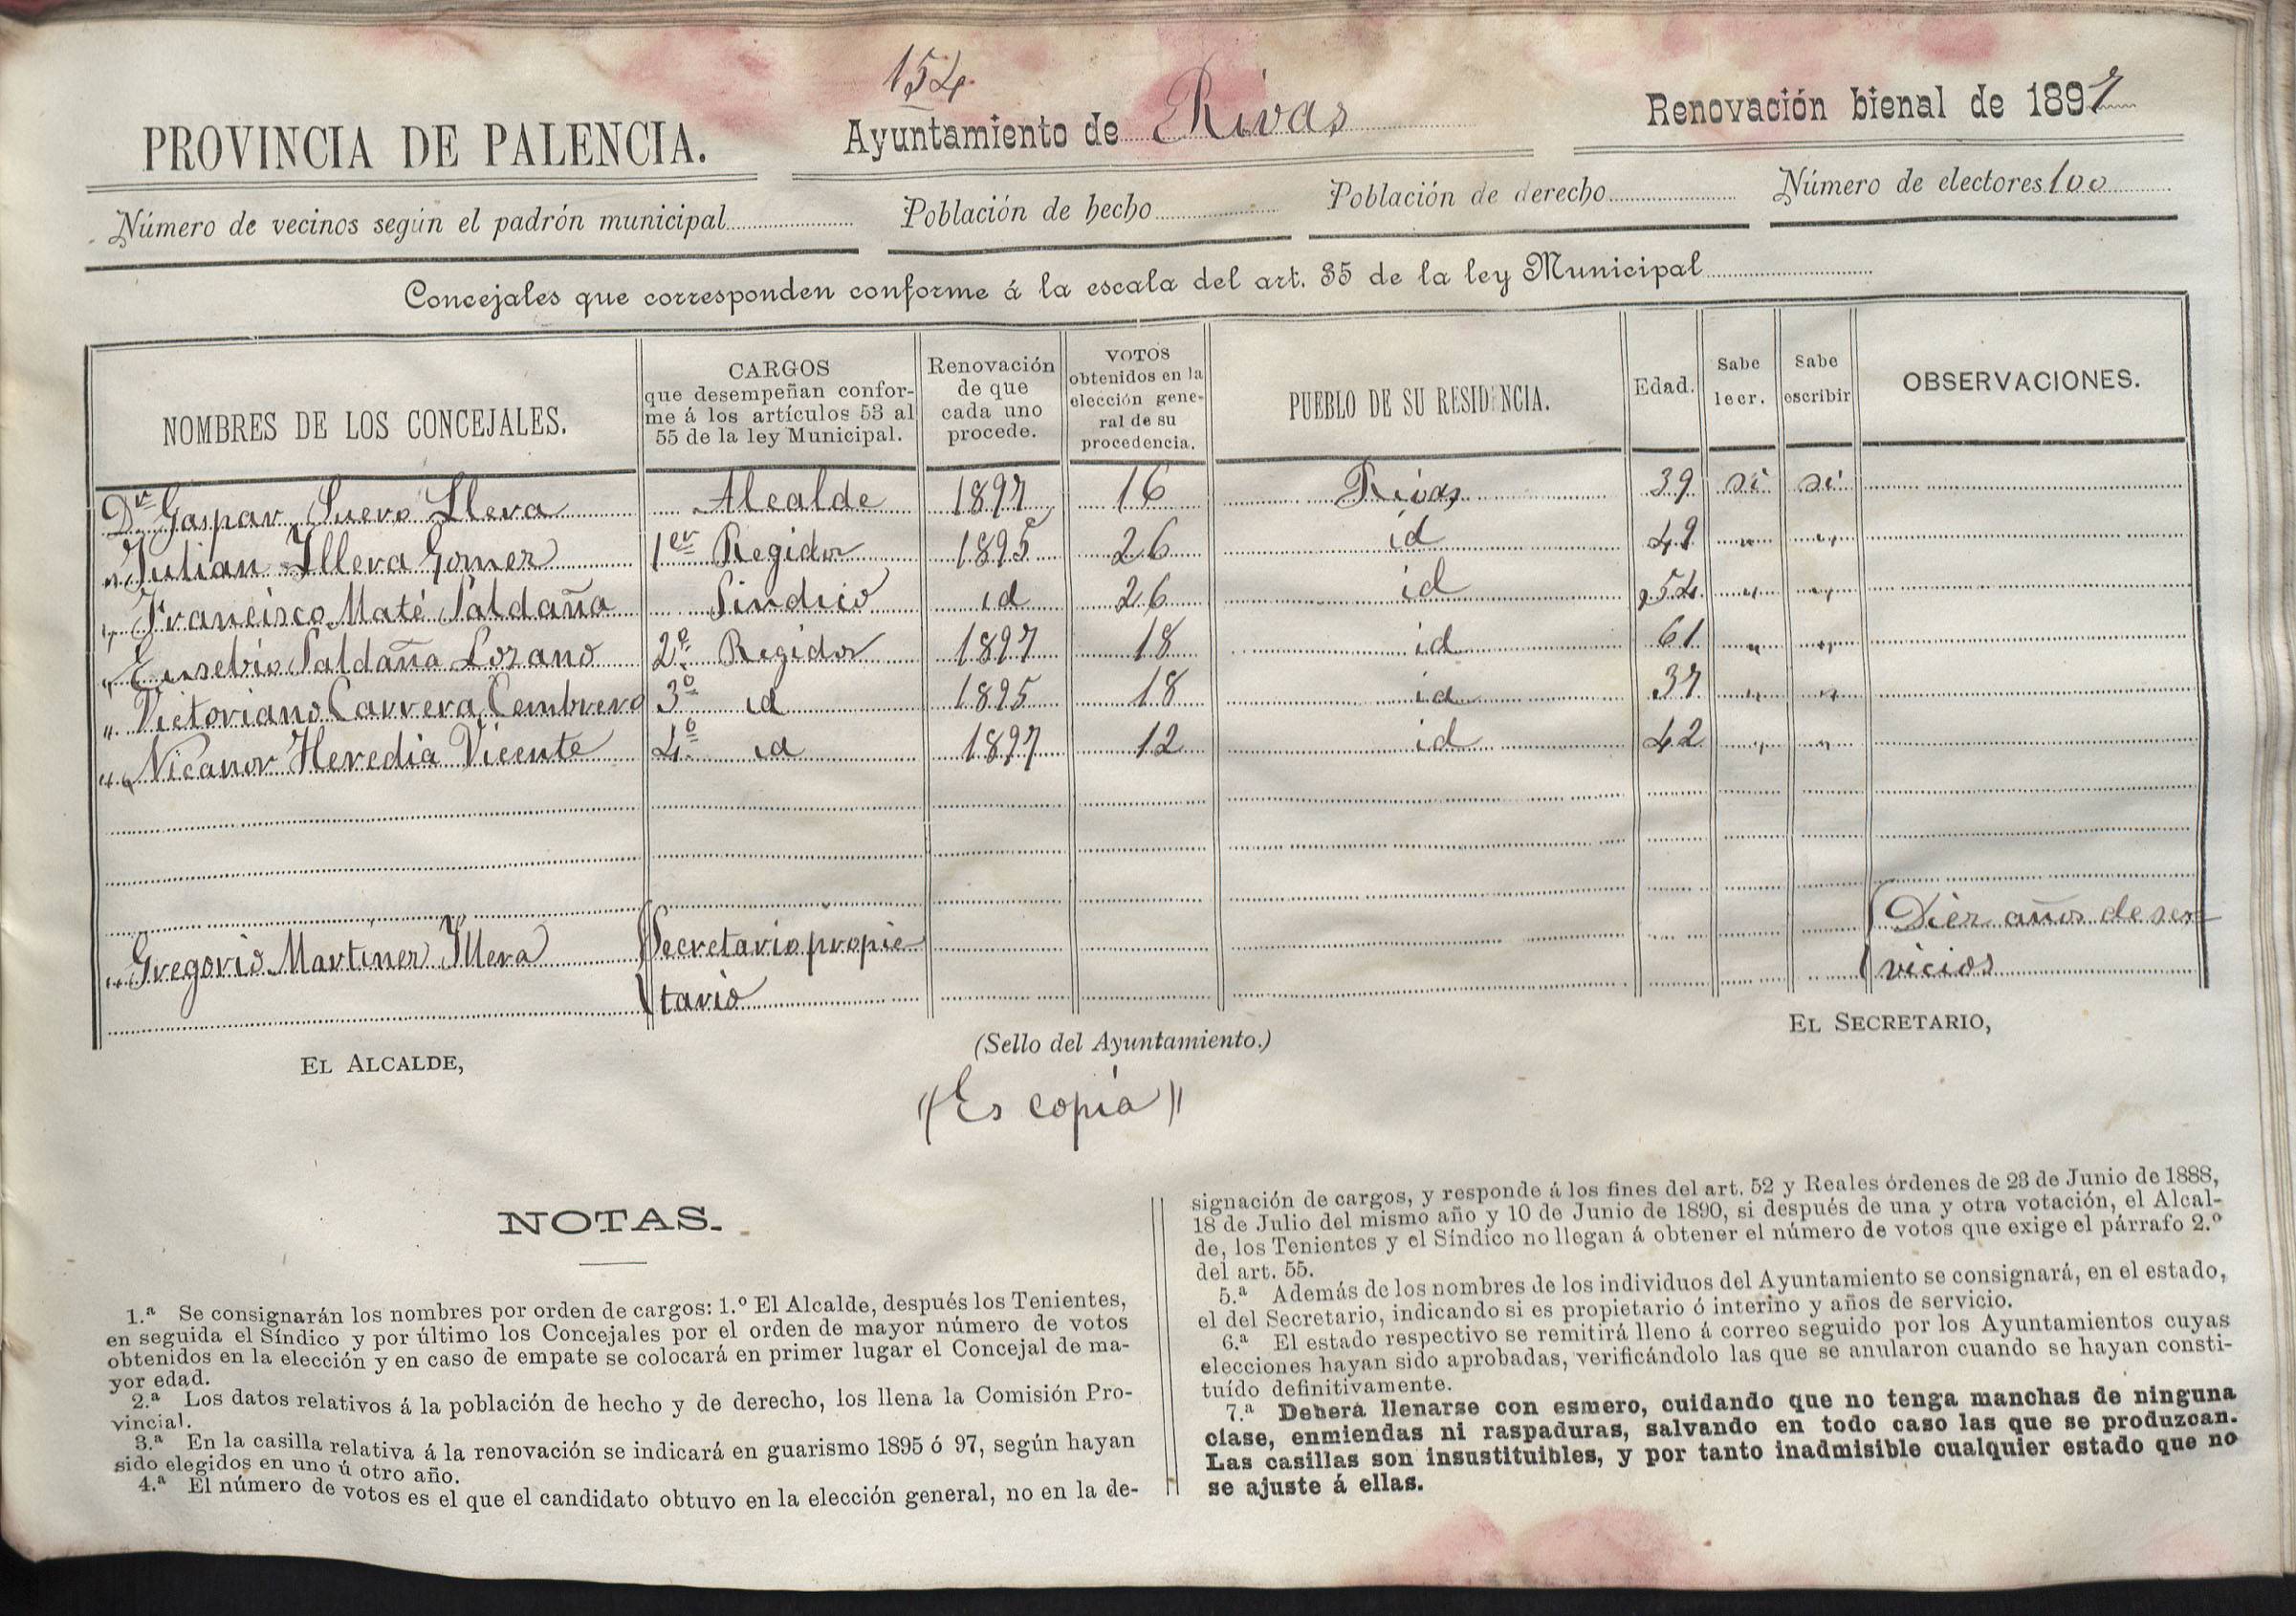 154.
PROVINCIA DE PALENCIA. Ayuntamiento de Rivas Renovación bienal de 1897
Número de vecinos según el padrón municipal Población de hecho Población de derecho Número de electores 100
Concejales que corresponden conforme á la escala del art. 35 de la ley Municipal
NOMBRES DE LOS CONCEJALES. CARGOS que desempeñan conforme á los artículos 53 al 55 de la ley Municipal. Renovación de que cada uno procede. VOTOS obtenidos en la elección general de su procedencia. PUEBLO DE SU RESIDENCIA. Edad. Sabe leer. Sabe escribir OBSERVACIONES.
Dn Gaspar Suero Llera Alcalde 1897 16 Rivas 39 si si
" Julian Illera Gomez 1er Regidor 1895 26 id 49 " "
" Francisco Maté Saldaña Sindico id 26 id 54 " "
" Eusebio Saldaña Lozano 2º Regidor 1897 18 id 61 " "
" Victoriano Carrera Cembrero 3º id 1895 18 id 37 " "
" Nicanor Heredia Vicente 4º id 1897 12 id 42 " "
" Gregorio Martinez Illera Secretario propie Diez años de ser
tario vicios
EL ALCALDE, (Sello del Ayuntamiento.) EL SECRETARIO,
(Es copia)
NOTAS.
1.ª Se consignarán los nombres por orden de cargos: 1.º El Alcalde, después los Tenientes,
en seguida el Síndico y por último los Concejales por el orden de mayor número de votos
obtenidos en la elección y en caso de empate se colocará en primer lugar el Concejal de ma-
yor edad.
2.ª Los datos relativos á la población de hecho y de derecho, los llena la Comisión Pro-
vincial.
3.ª En la casilla relativa á la renovación se indicará en guarismo 1895 ó 97, según hayan
sido elegidos en uno ú otro año.
4.ª El número de votos es el que el candidato obtuvo en la elección general, no en la de-
signación de cargos, y responde á los fines del art. 52 y Reales órdenes de 23 de Junio de 1888,
18 de Julio del mismo año y 10 de Junio de 1890, si después de una y otra votación, el Alcal-
de, los Tenientes y el Síndico no llegan á obtener el número de votos que exige el párrafo 2.º
del art. 55.
5.ª Además de los nombres de los individuos del Ayuntamiento se consignará, en el estado,
el del Secretario, indicando si es propietario ó interino y años de servicio.
6.ª El estado respectivo se remitirá lleno á correo seguido por los Ayuntamientos cuyas
elecciones hayan sido aprobadas, verificándolo las que se anularon cuando se hayan consti-
tuído definitivamente.
7.ª Deberá llenarse con esmero, cuidando que no tenga manchas de ninguna
clase, enmiendas ni raspaduras, salvando en todo caso las que se produzcan.
Las casillas son insustituibles, y por tanto inadmisible cualquier estado que no
se ajuste á ellas.